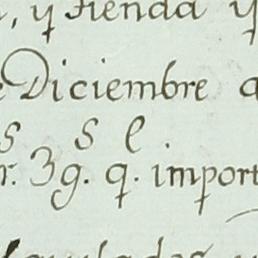 , y tienda y
Diciembre
s s e
r. 3g. q. import